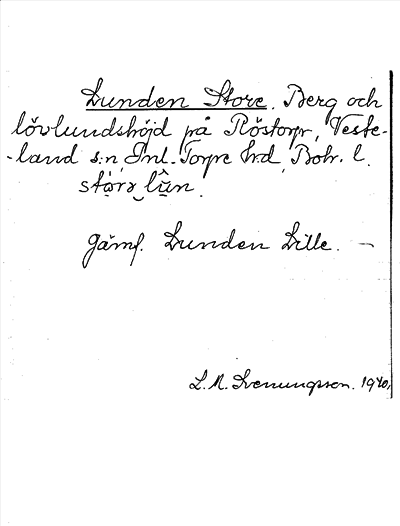 Lunden Store. Berg och
lövlundshöjd på Röstorp, Veste-
-land s:n, Inl. Torpe hrd, Boh. l.
stọ̀rə‿lûn.
Jämf. Lunden Lille. —
L. M. Svenungsson. 1940.